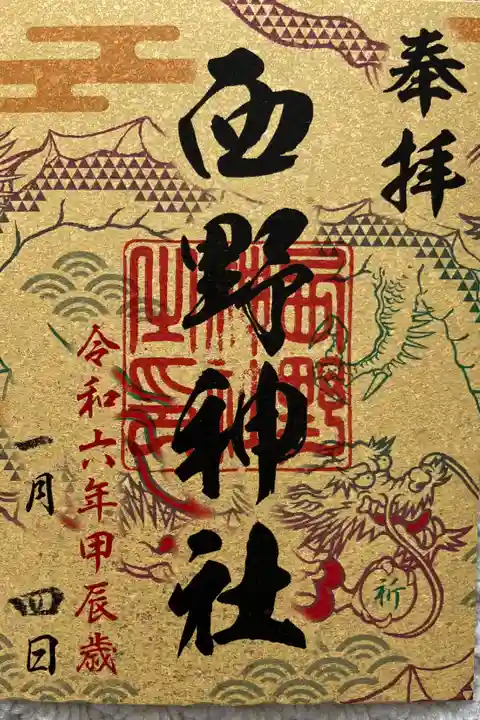 奉拝
西野神社
西野神社之印
祈
令和六年甲辰歳
一月 四日